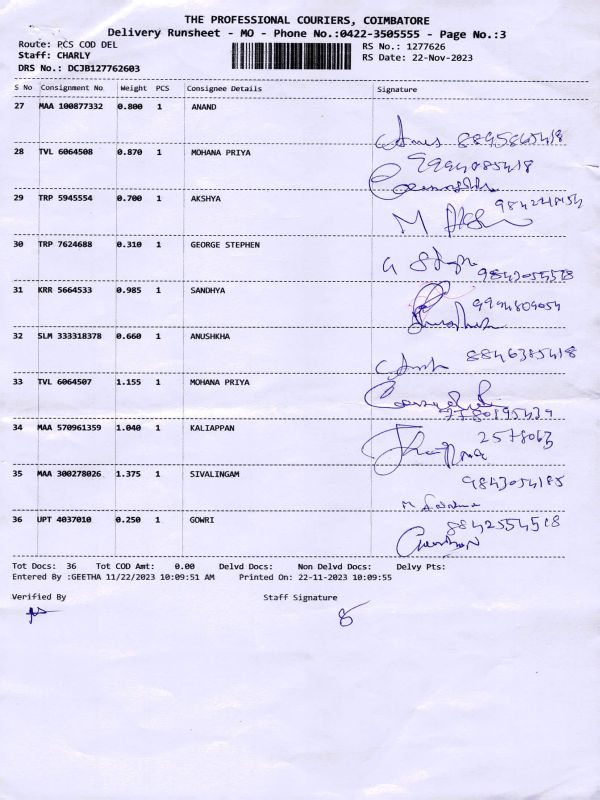 THE PROFESSIONAL COURIERS, COIMBATORE
Delivery Runsheet - MO - Phone No.:0422-3505555 - Page No.:3
Route: PCS COD DEL
RS No.: 1277626
Staff: CHARLY
RS Date: 22-Nov-2023
DRS No.: DCJB127762603
S No Consignment No Weight PCS Consignee Details Signature
27 MAA 100877332 0.800 1 ANAND
28 TVL 6064508 0.870 1 MOHANA PRIYA
9994085418
29 TRP 5945554 0.700 1 AKSHYA
30 TRP 7624688 0.310 1 GEORGE STEPHEN
31 KRR 5664533 0.985 1 SANDHYA
9994809054
32 SLM 333318378 0.660 1 ANUSHKHA
8846385418
33 TVL 6064507 1.155 1 MOHANA PRIYA
34 MAA 570961359 1.040 1 KALIAPPAN
2578063
35 MAA 300278026 1.375 1 SIVALINGAM
9843054185
36 UPT 4037010 0.250 1 GOWRI
8842554518
Tot Docs: 36 Tot COD Amt: 0.00 Delvd Docs: Non Delvd Docs: Delvy Pts:
Entered By :GEETHA 11/22/2023 10:09:51 AM Printed On: 22-11-2023 10:09:55
Verified By Staff Signature